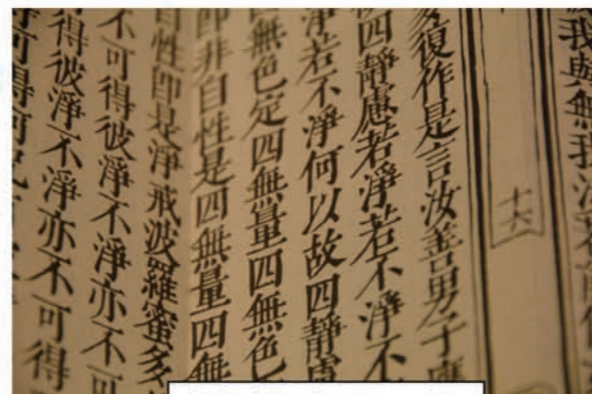 我與無我
十六
多復作是言汝善男子應
四靜慮若淨若不淨不
淨若不淨何以故四靜慮
無色定四無量四無色
即非自性是四無量四無
自性即是淨戒波羅蜜多
不可得彼淨不淨亦不可
得彼淨不淨亦不可得
可得何況